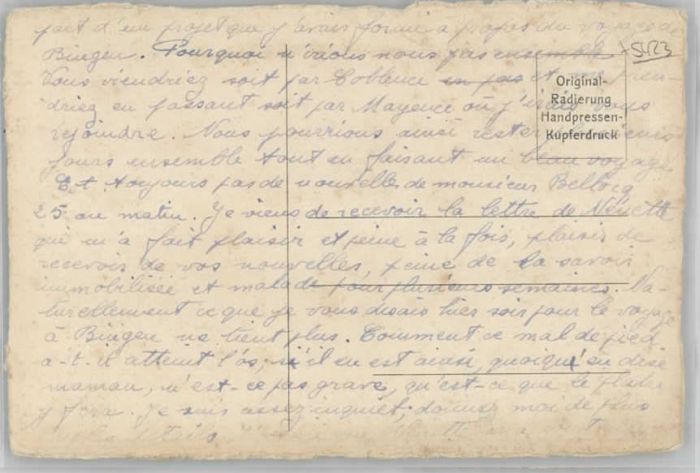 part d'un projet que j'avais formé à propos du voyage de
Bingen. Pourquoi n'irions nous pas ensemble
Vous viendriez soit par Coblence
en passant soit par Mayence où j'irais vous
rejoindre. Nous pourrions ainsi rester
jours ensemble tout en faisant un beau voyage
Et toujours pas de nouvelles de monsieur
25 au matin. Je viens de recevoir la lettre de
qui m'a fait plaisir et peine à la fois, plaisir de
recevoir de vos nouvelles, peine de la savoir
immobilisée et malade pour plusieurs semaines. Na-
turellement ce que je vous disais hier soir pour le voyage
à Bingen ne tient plus. Comment ce mal de pied
a-t-il atteint l'os, s'il en est ainsi, quoiqu'en dise
maman, n'est-ce pas grave, qu'est-ce que le
y fera. Je suis assez inquiet, donnez moi de plus
Original-
Radierung
Handpressen-
Kupferdruck